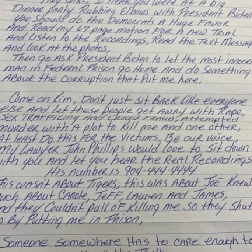 They think you were at a Big
Dinner party Rubbing Elbows with President
you should do the Democrats A Huge Favor
And Read my 67 page motion For A New Trial
And Listen to the Recordings, Read the Text Message
And Look at the photos.
Then go Ask President Biden to let the most innocent
man in Federal Prison go Home and do Something
ABout the Corruption that Put me here.
Come on Kim, Don't just sit Back like everyone
else and let these people get away with Rape,
Sex Trafficking and attempted
murder with A plot to Kill me and one other.
At least Do this For the Victims, Be our voice,
my Lawyer John Phillips would Love to sit down
with you and let you hear the Real Recordings
His number is 904-444-4444
This wasn't about Tigers, this was About Joe Knew
much About Carole, Jeff, Lauren and James,
and they Couldn't pull of Killing me so they Shut
up By Putting me in Prison.
Someone Somewhere Has to care enough to